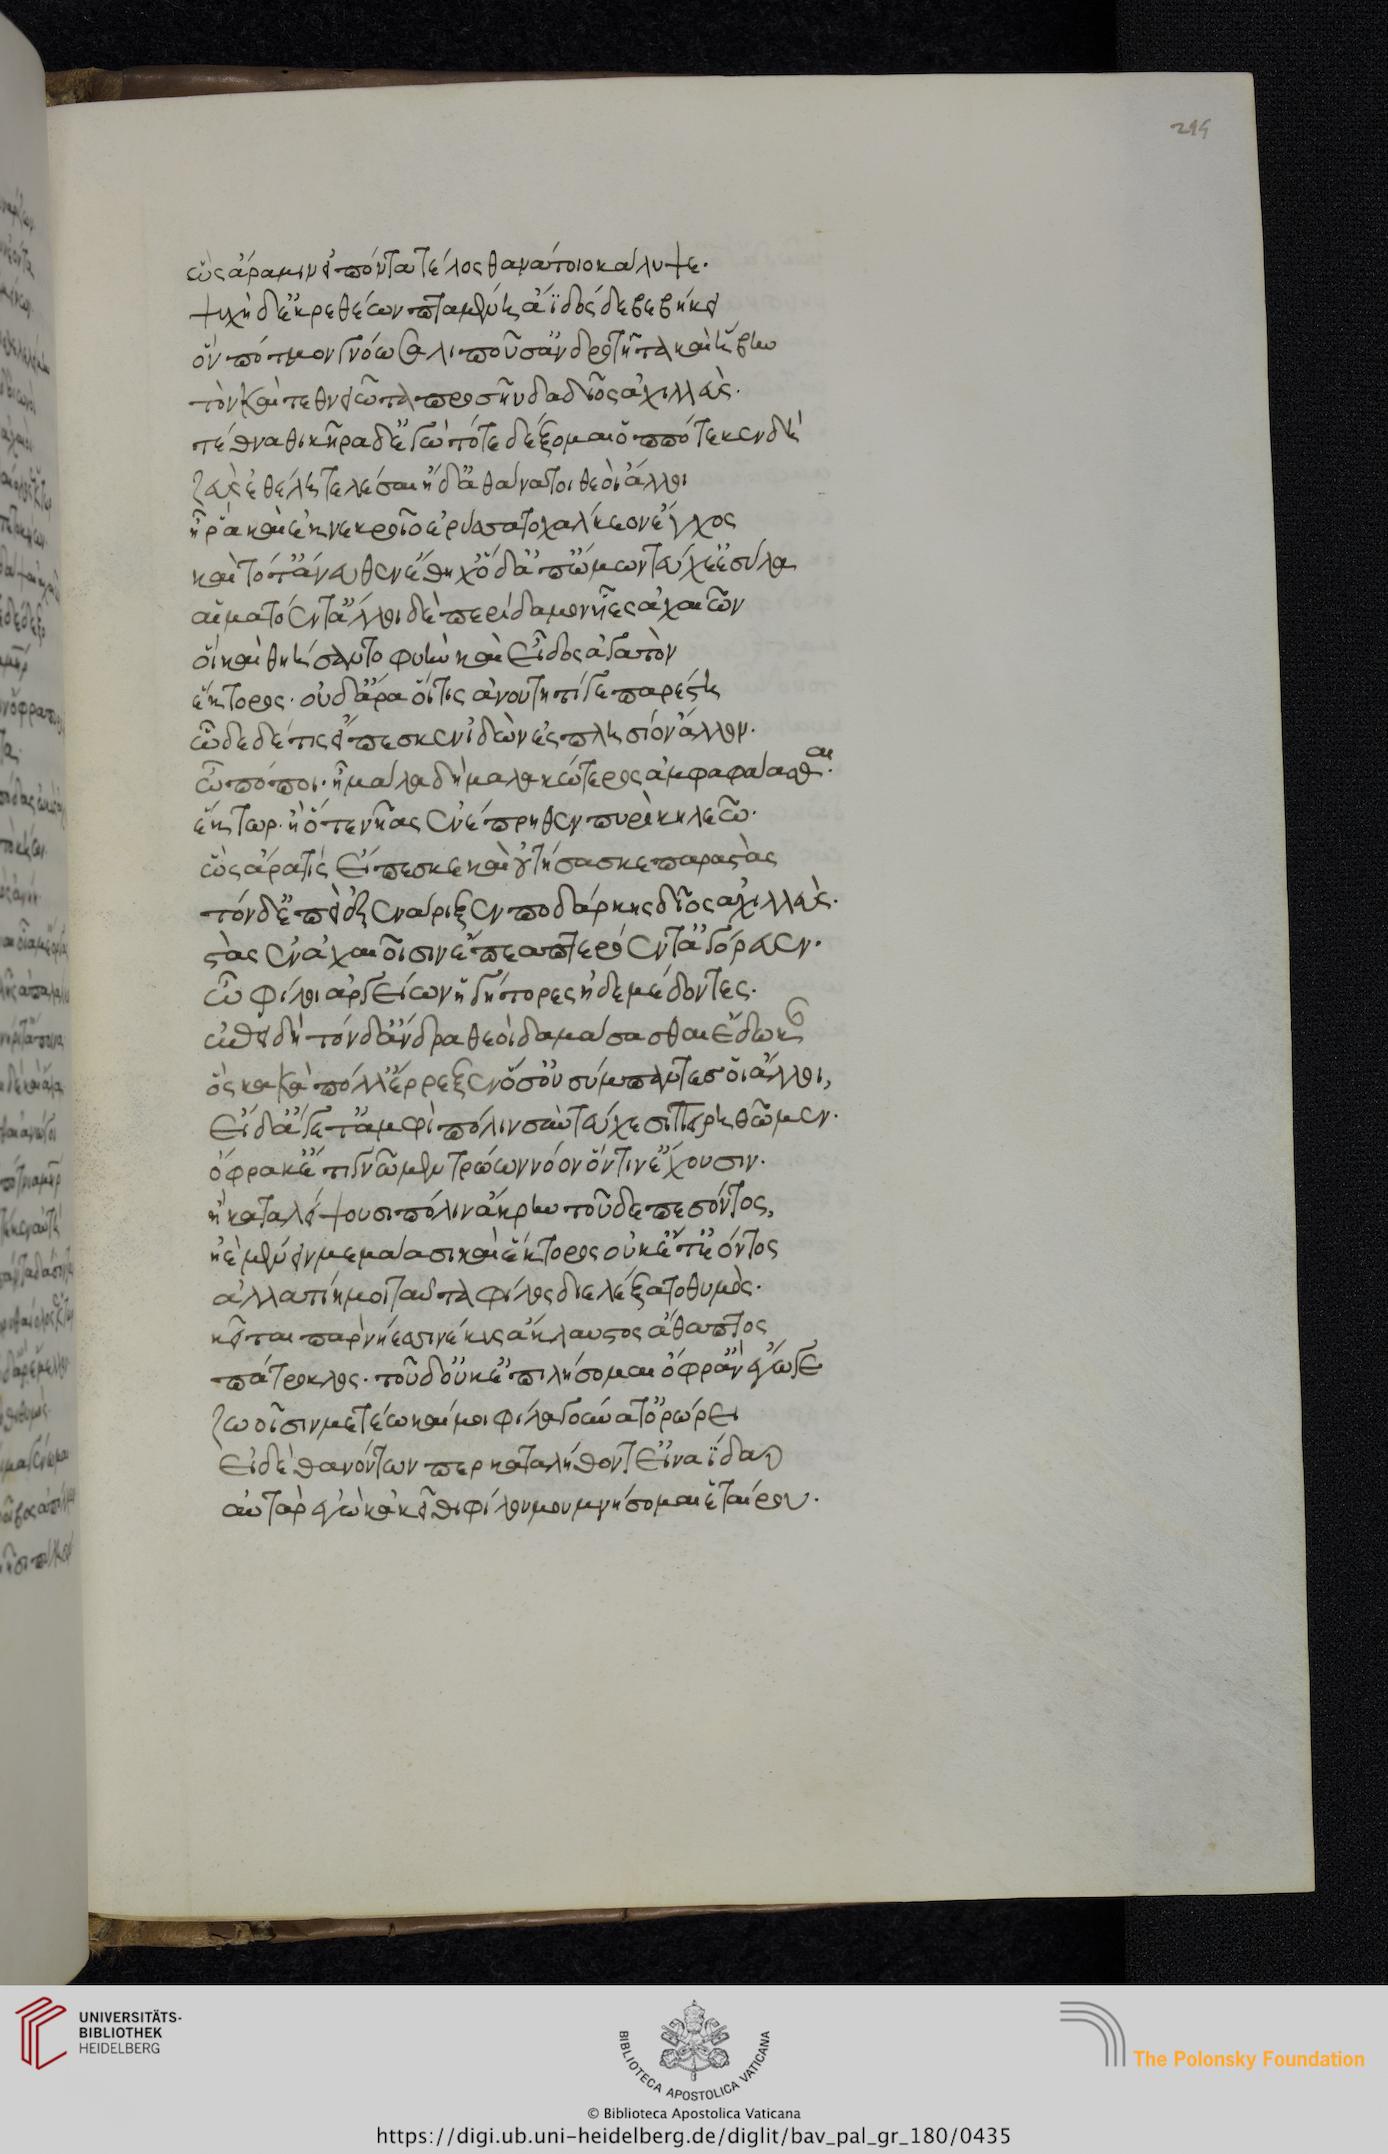 214
ὣς ἄρα μιν εἰπόντα τέλος θανάτοιο κάλυψε.
ψυχὴ δ' ἐκ ρεθέων πταμένη ἄϊδόσδε βεβήκει
ὃν πότμον γοόωσα λιποῦσ' ἀνδροτῆτα καὶ ἥβην
τὸν καὶ τεθνειῶτα προσηύδα δῖος ἀχιλλεὺς.
τέθναθι κῆρα δ' ἐγὼ τότε δέξομαι ὁππότε κεν δὴ
ζεὺς ἐθέλῃ τελέσαι ἠδ' ἀθάνατοι θεοὶ ἄλλοι
ἦ ῥα καὶ ἐκ νεκροῖο ἐρύσατο χάλκεον ἔγχος
καὶ τό γ' ἄνευθεν ἔθηχ' ὃ δ' ἀπ' ὤμων τεύχε' ἐσύλα
αἱματόεντ' ἄλλοι δὲ περίδραμον υἷες ἀχαιῶν
οἳ καὶ θηήσαντο φυὴν καὶ εἶδος ἀγατὸν
ἕκτορος. οὐδ' ἄρα οἵ τις ἀνουτητί γε παρέστη
ὧδε δέ τις εἴπεσκεν ἰδὼν ἐς πλησίον ἄλλον.
ὢ πόποι. ἦ μάλα δὴ μαλακώτερος ἀμφαφάασθαι.
ἕκτωρ. ἢ ὅτε νῆας ἐνέπρηθεν πυρὶ κηλέω.
ὣς ἄρα τίς εἴπεσκε καὶ οὐτήσασκε παραστὰς
τόνδ' ἐπεὶ ἐξενάριξεν ποδάρκης δῖος ἀχιλλεὺς.
στὰς ἐν ἀχαιοῖσιν ἔπεα πτερόεντ' ἀγόρευεν.
ὦ φίλοι ἀργείων ἡγήτορες ἠδὲ μέδοντες.
ἐπειδὴ τόνδ' ἄνδρα θεοὶ δαμάσασθαι ἔδωκαν
ὃς κακὰ πόλλ' ἔρρεξεν ὅσ' οὐ σύμπαντες οἱ ἄλλοι,
εἰ δ' ἄγετ' ἀμφὶ πόλιν σὺν τεύχεσι πειρηθῶμεν.
ὄφρα κ' ἔτι γνῶμεν τρώων νόον ὅντιν' ἔχουσιν.
ἢ καταλείψουσι πόλιν ἄκρην τοῦδε πεσόντος,
ἠὲ μένειν μεμάασι καὶ ἕκτορος οὐκέτ' ἐόντος
ἀλλὰ τίη μοι ταῦτα φίλος διελέξατο θυμὸς.
κεῖται παρ νήεσσι νέκυς ἄκλαυτος ἄθαπτος
πάτροκλος. τοῦδ' οὐκ ἐπιλήσομαι ὄφρ' ἂν ἔγωγε
ζωοῖσιν μετέω καί μοι φίλα γούνατ' ὀρώρει
εἰ δὲ θανόντων περ καταλήθοντ' εἰν ἀΐδαο
αὐτὰρ ἐγὼ κἀκεῖθι φίλου μου μνήσομαι ἑταίρου.
UNIVERSITÄTS-
BIBLIOTHEK
HEIDELBERG
BIBLIOTECA APOSTOLICA VATICANA
The Polonsky Foundation
© Biblioteca Apostolica Vaticana
https://digi.ub.uni-heidelberg.de/diglit/bav_pal_gr_180/0435